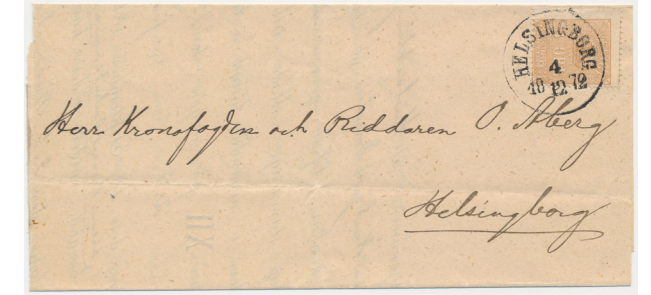 HELSINGBORG
4
10 12 72
Herr Kronofogden och Riddaren O. Åberg
Helsingborg
XII